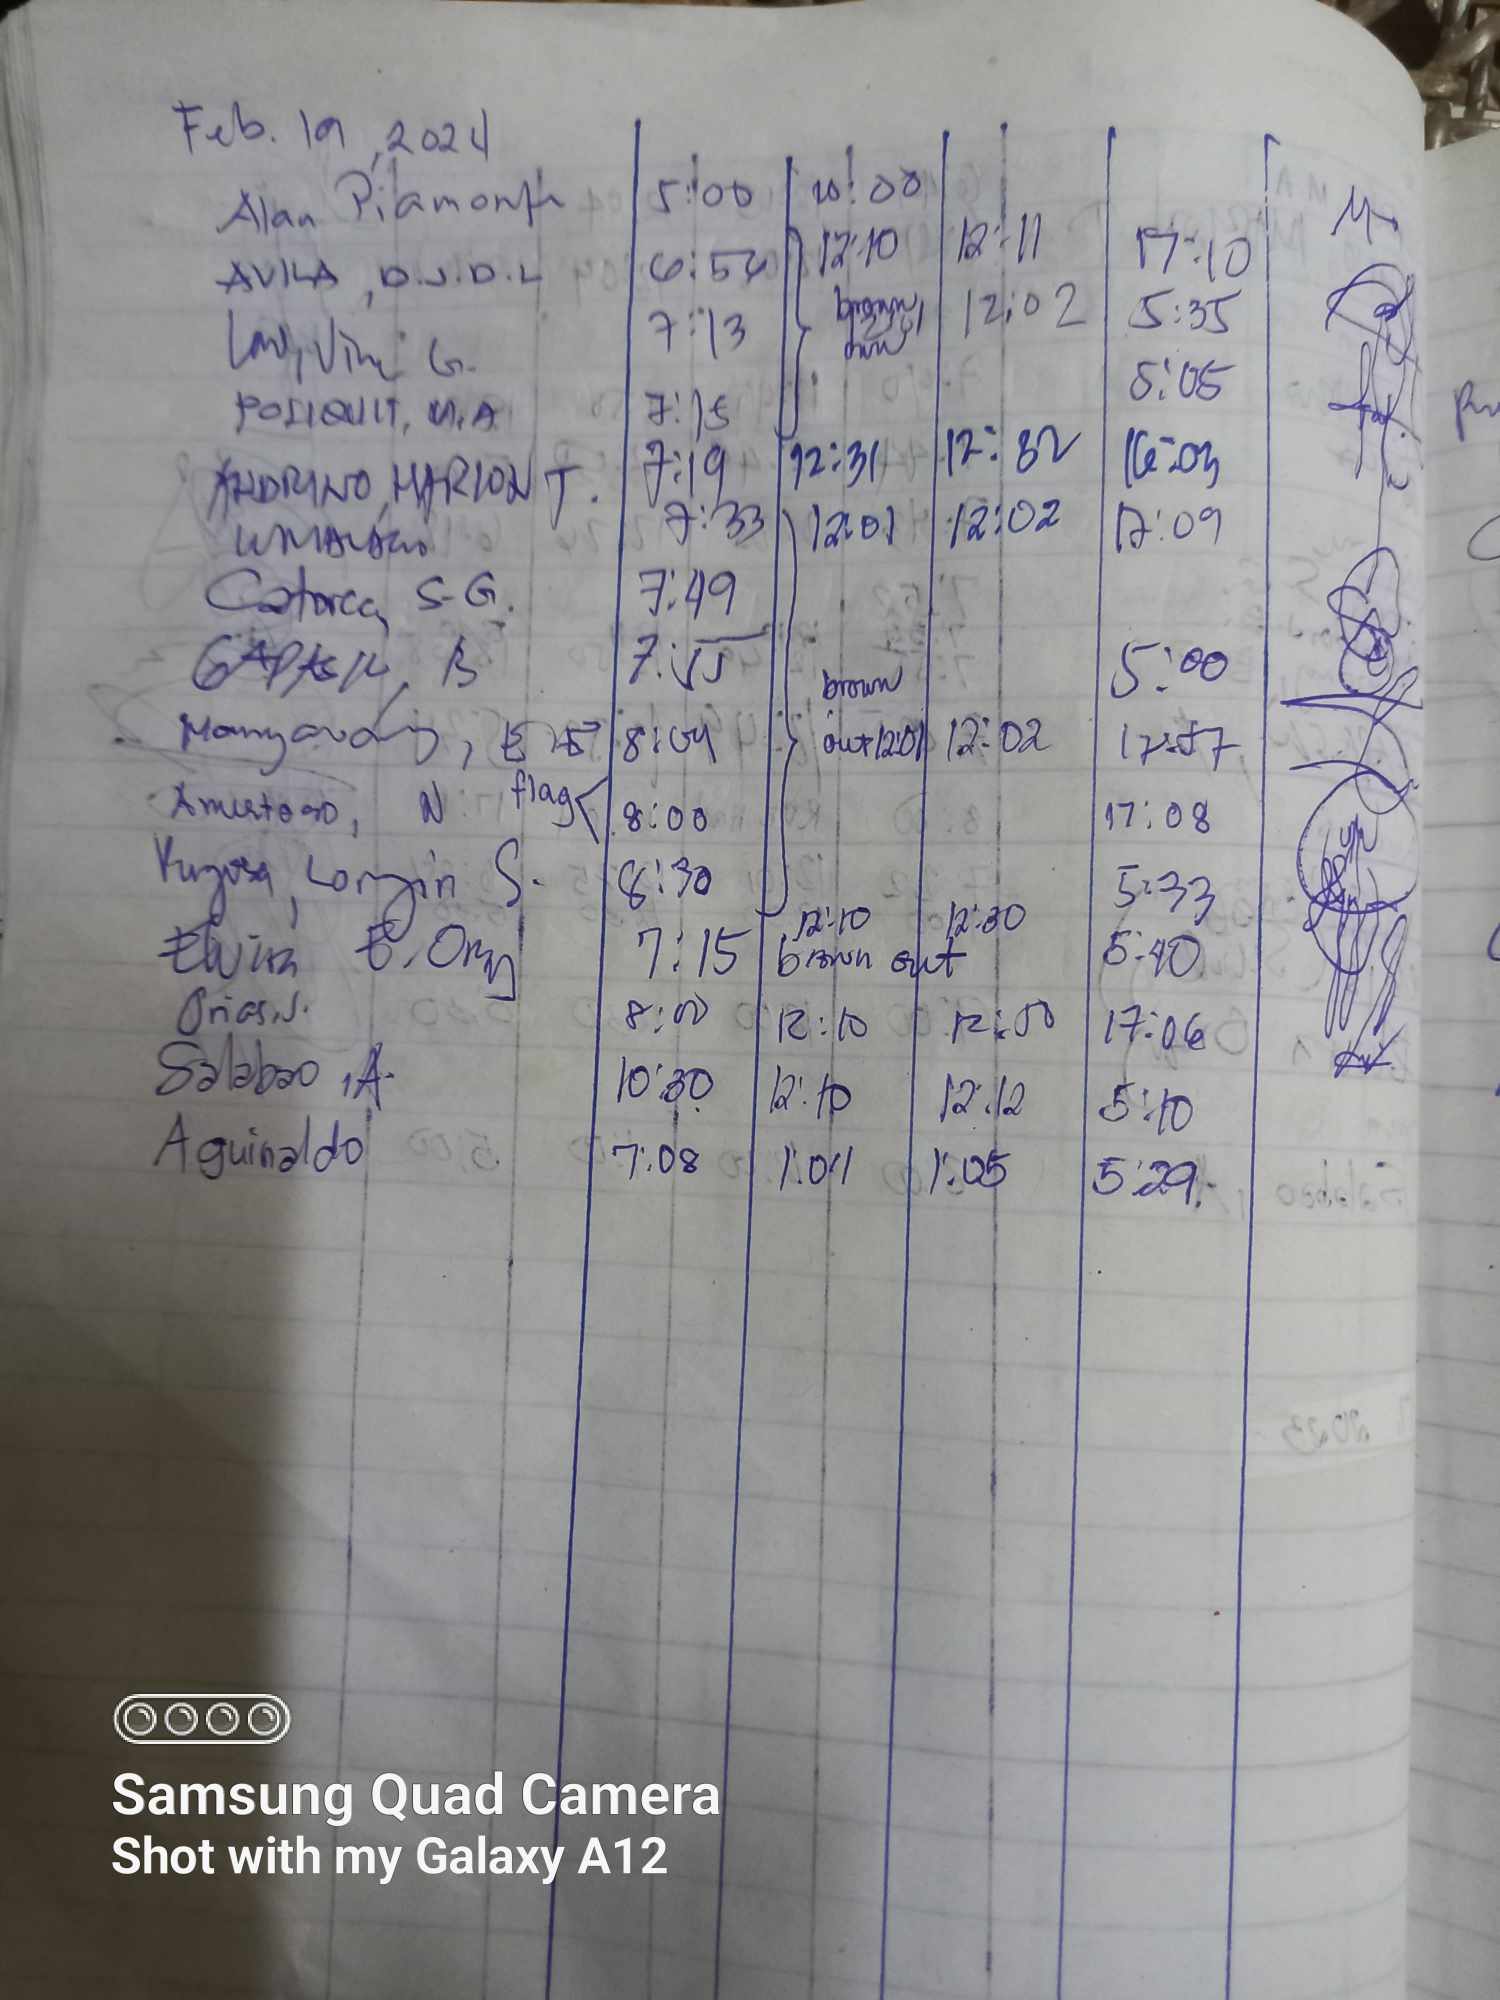 Feb. 19, 2024
Alan 5:00 10:00
AVILA, D.J.D.L 6:54 12:10 12:11 17:10
G. 7:13 brown 12:02 5:35
POLIQUIT, M.A 7:15 5:05
ANDRINO, MARION T. 7:19 12:31 12:32 16:03
7:33 12:01 12:02 17:09
Catorce, S.G. 7:49
B 7:55 5:00
brown
8:04 out 12:01 12:02 17:57
N flag 8:00 17:08
Longin S. 8:30 5:33
12:10 12:30
Elvira E. 7:15 brown out 5:40
Orias, J. 8:00 12:10 12:50 17:06
Salabao, A. 10:30 12:10 12:12 5:10
Aguinaldo 7:08 1:04 1:05 5:29
2023
Samsung Quad Camera
Shot with my Galaxy A12